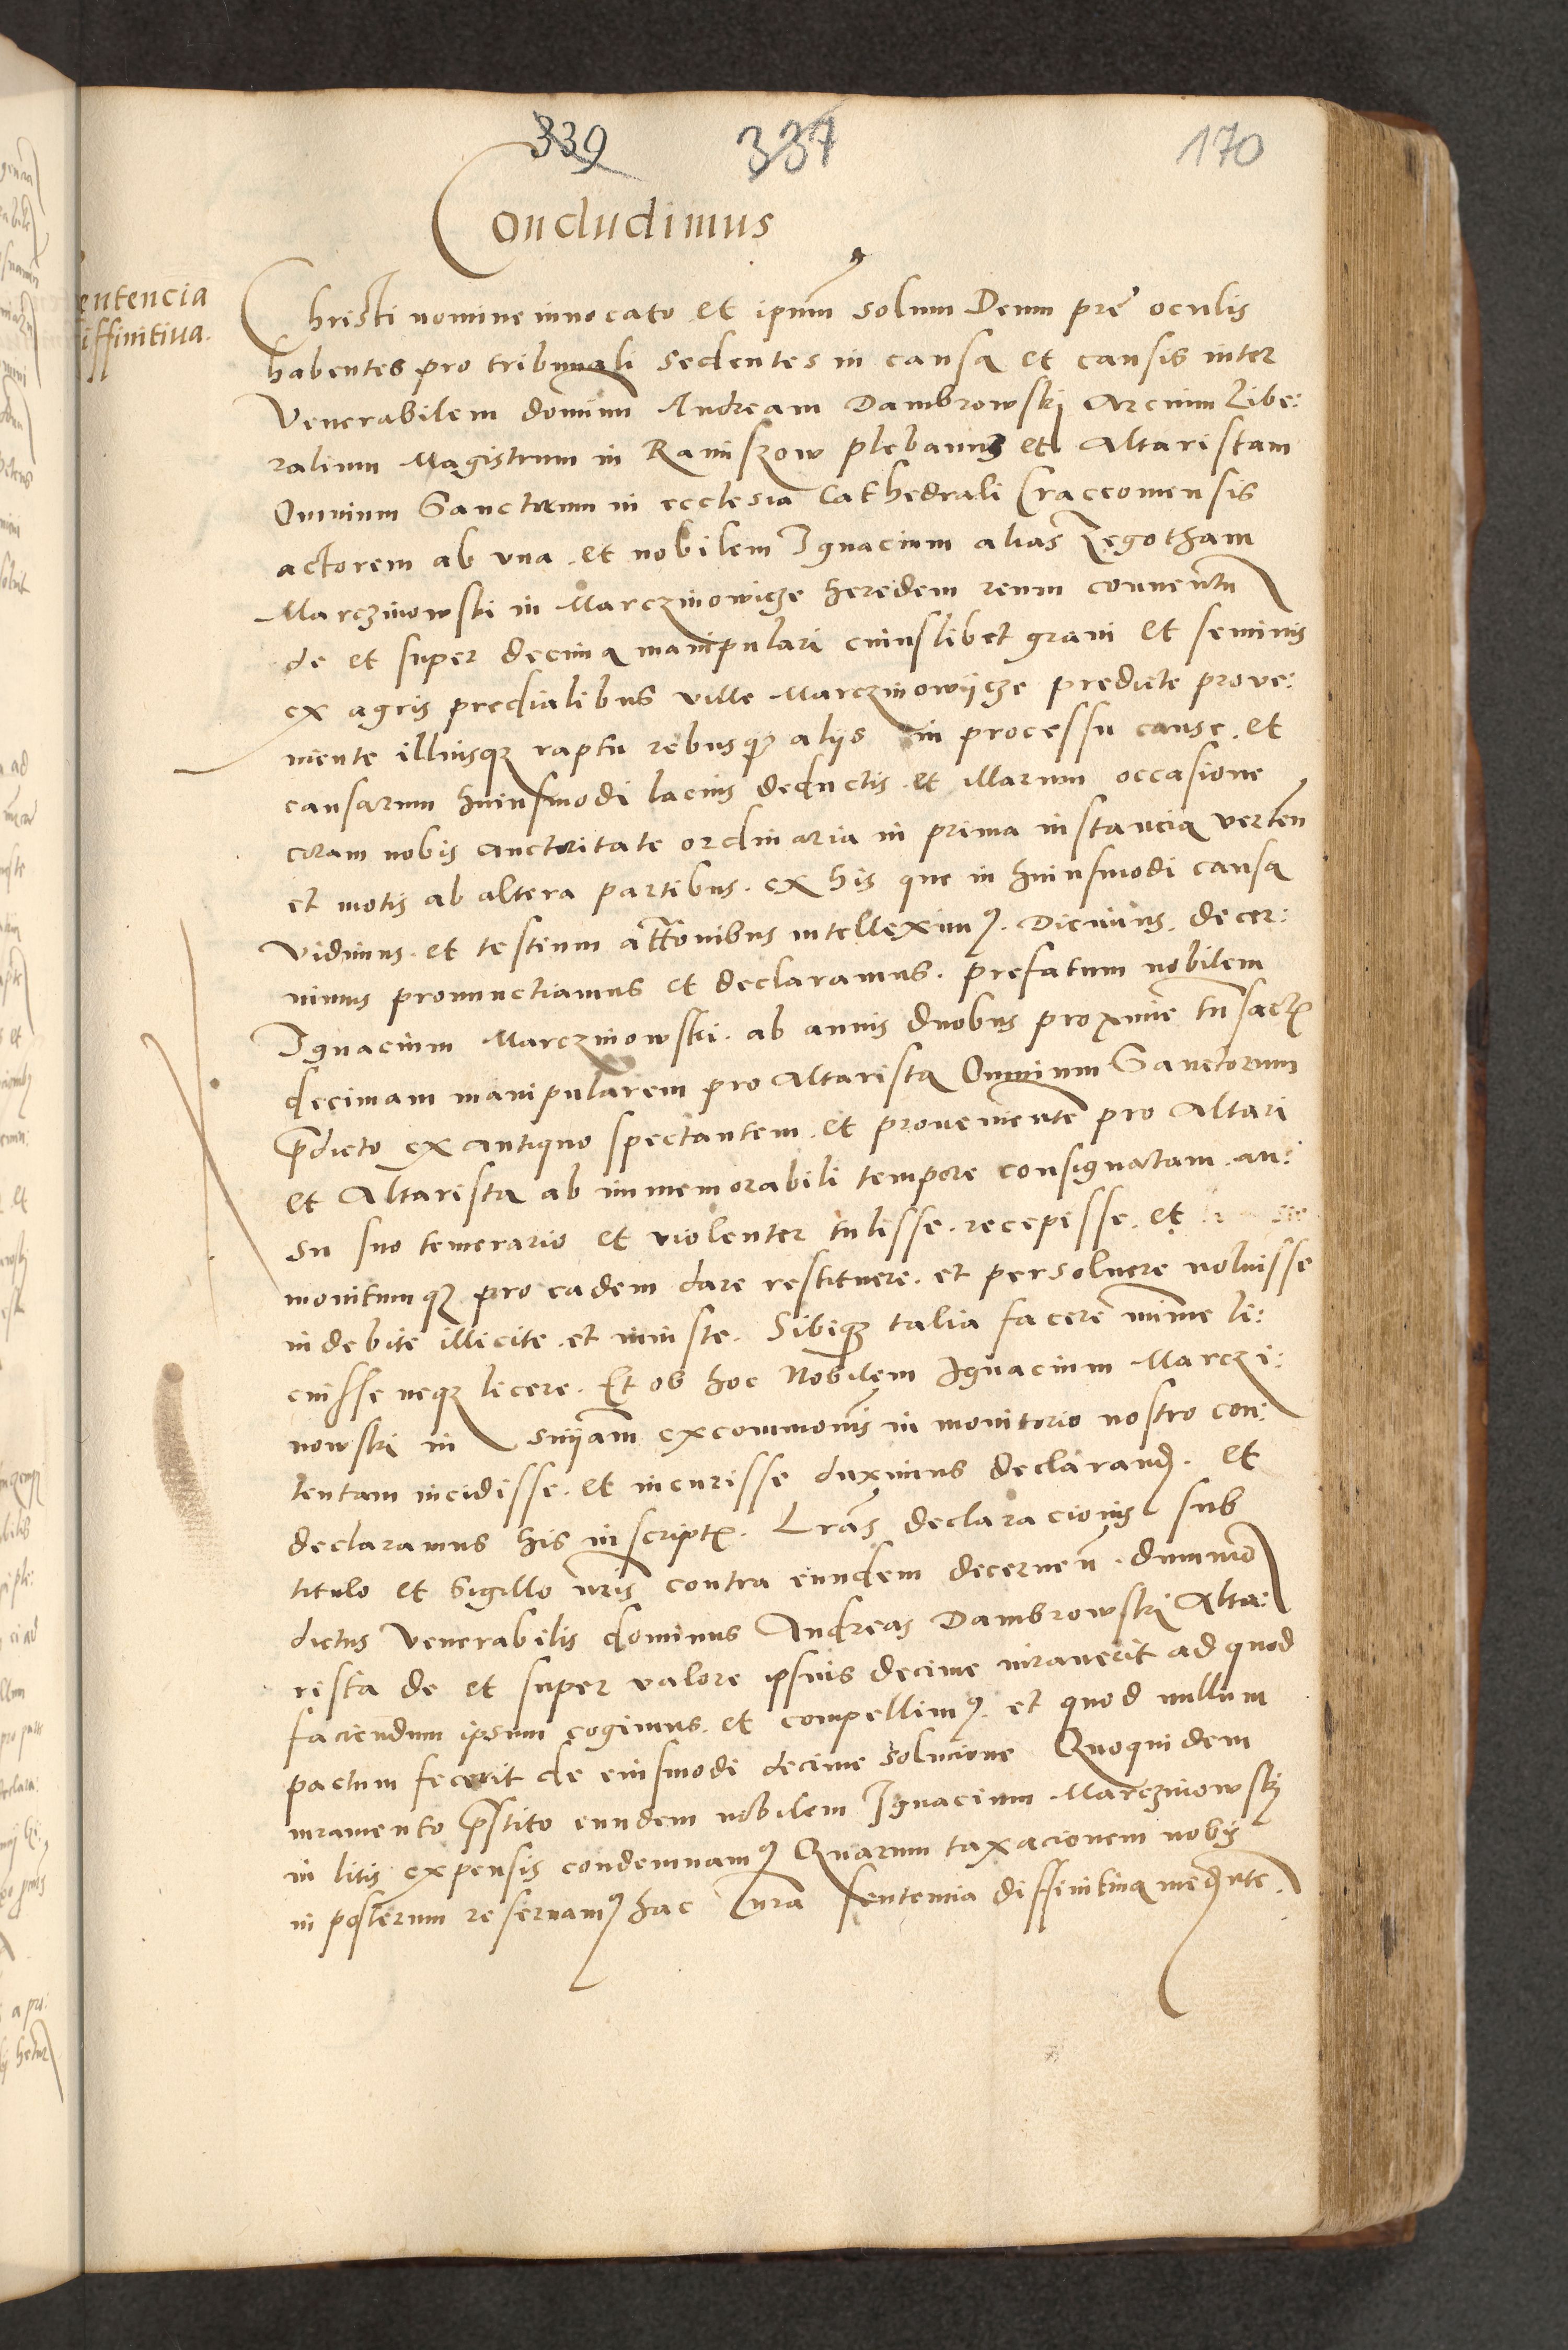 339 337 170
Concludimus
entencia
iffinitiua.
Christi nomine inuocato et ipum̄ solum Deum pre oculis
habentes pro tribunali sedentes in causa et causis inter
Venerabilem domīnū Andream Dambrowskj Arcium Libe:
ralium Magistrum in Raniszow plebanum et Altaristam
Omnium Sanctorum in ecclesia Cathedrali Craccouiensis
actorem ab vna et nobilem Ignacium alias Zegotham
Marczinowski in Marczinowicze heredem reum conuentū
de et super decima manipulari cuiuslibet grani et seminis
ex agris predialibus ville Marczinowijcze predicte proue:
niente illiusqz raptu rebusqz alijs in processu cause. et
causarum huiusmodi lacius deductis. et illarum occasione
coram nobis auctoritate ordinaria in prima instancia verteñ
et motis ab altera partibus. ex his que in huiusmodi causa
vidimus. et testium attōnibus intelleximꝰ. Dicimus. decer:
nimus pronunctiamus et declaramus. prefatum nobilem
Ignacium Marczinowski. ab annis duobus proxime trn̄sactꝭ
decimam manipularem pro Altarista Omnium Sanctorum
p̄dicto ex antiquo spectantem. et prouenientē pro Altari
et Altarista ab immemorabili tempore consignatam. au:
su suo temerario et violenter tulisse. recepisse. et
monitumqz pro eadem dare restituere. et persoluere noluisse
indebite illicite. et iniuste. Sibiqz talia facere minime li:
cuisse neqz licere. Et ob hoc Nobilem Ignacium Marczi:
nowski in sn̄iam excommōnis in monitorio nostro con:
tentam incidisse. et incurisse duximus declarand̄. et
declaramus his in scriptꝭ. Lr̄as declaracionis sub
titulo et Sigillo nr̄is contra eundem decerneñ. dummō
dictus Venerabilis dominus Andreas Dambrowski Alta:
rista de et super valore ipsius decime iurauerit ad quod
faciendum ipsum cogimus. et compellimꝰ. et quod nullum
pactum fecerit de eiusmodi decime solucione Quoquidem
iuramento p̄stito eundem nobilem Ignacium Marczinowskj
in litis expensis condemnamꝰ Quarum taxacionem nobis
in posterum reseruamꝰ hac nr̄a sentencia diffinitiua med̄nte.